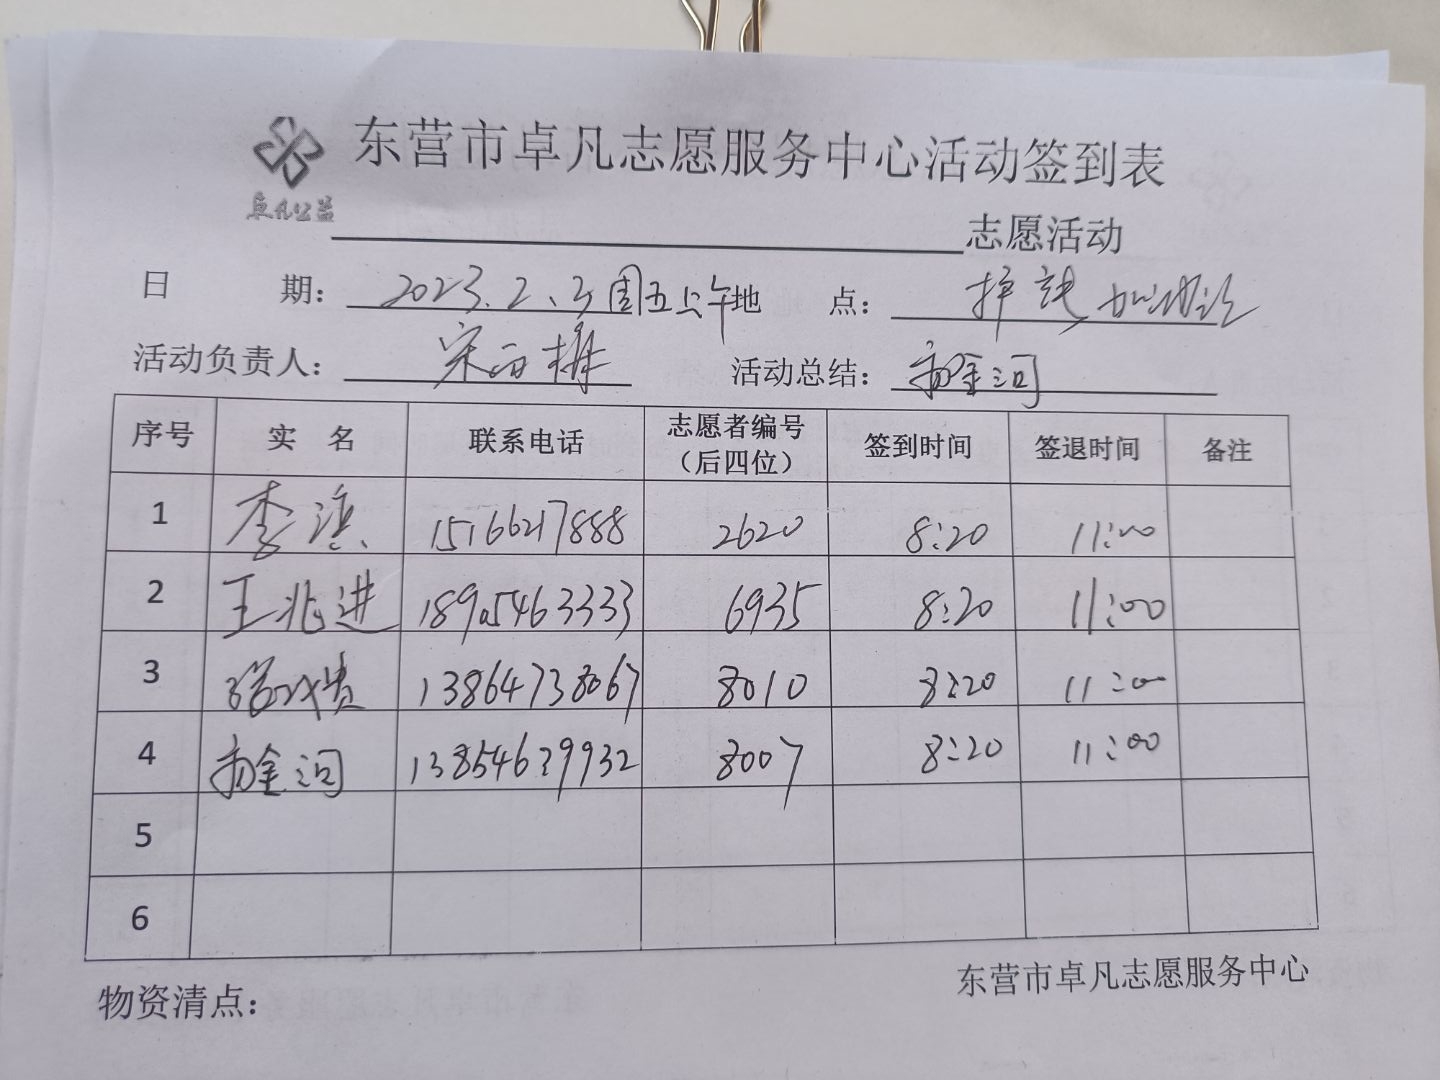 东营市卓凡志愿服务中心活动签到表
卓凡公益
志愿活动
日 期：2023.2.3周五上午 地 点：加油站
活动负责人：宋 活动总结：金河
序号 实 名 联系电话 志愿者编号（后四位） 签到时间 签退时间 备注
1 李滨 15166217888 2620 8:20 11:00
2 王兆进 18905463333 6935 8:20 11:00
3 贵 13864738067 8010 8:20 11:00
4 金河 13854639932 8007 8:20 11:00
5
6
物资清点：
东营市卓凡志愿服务中心